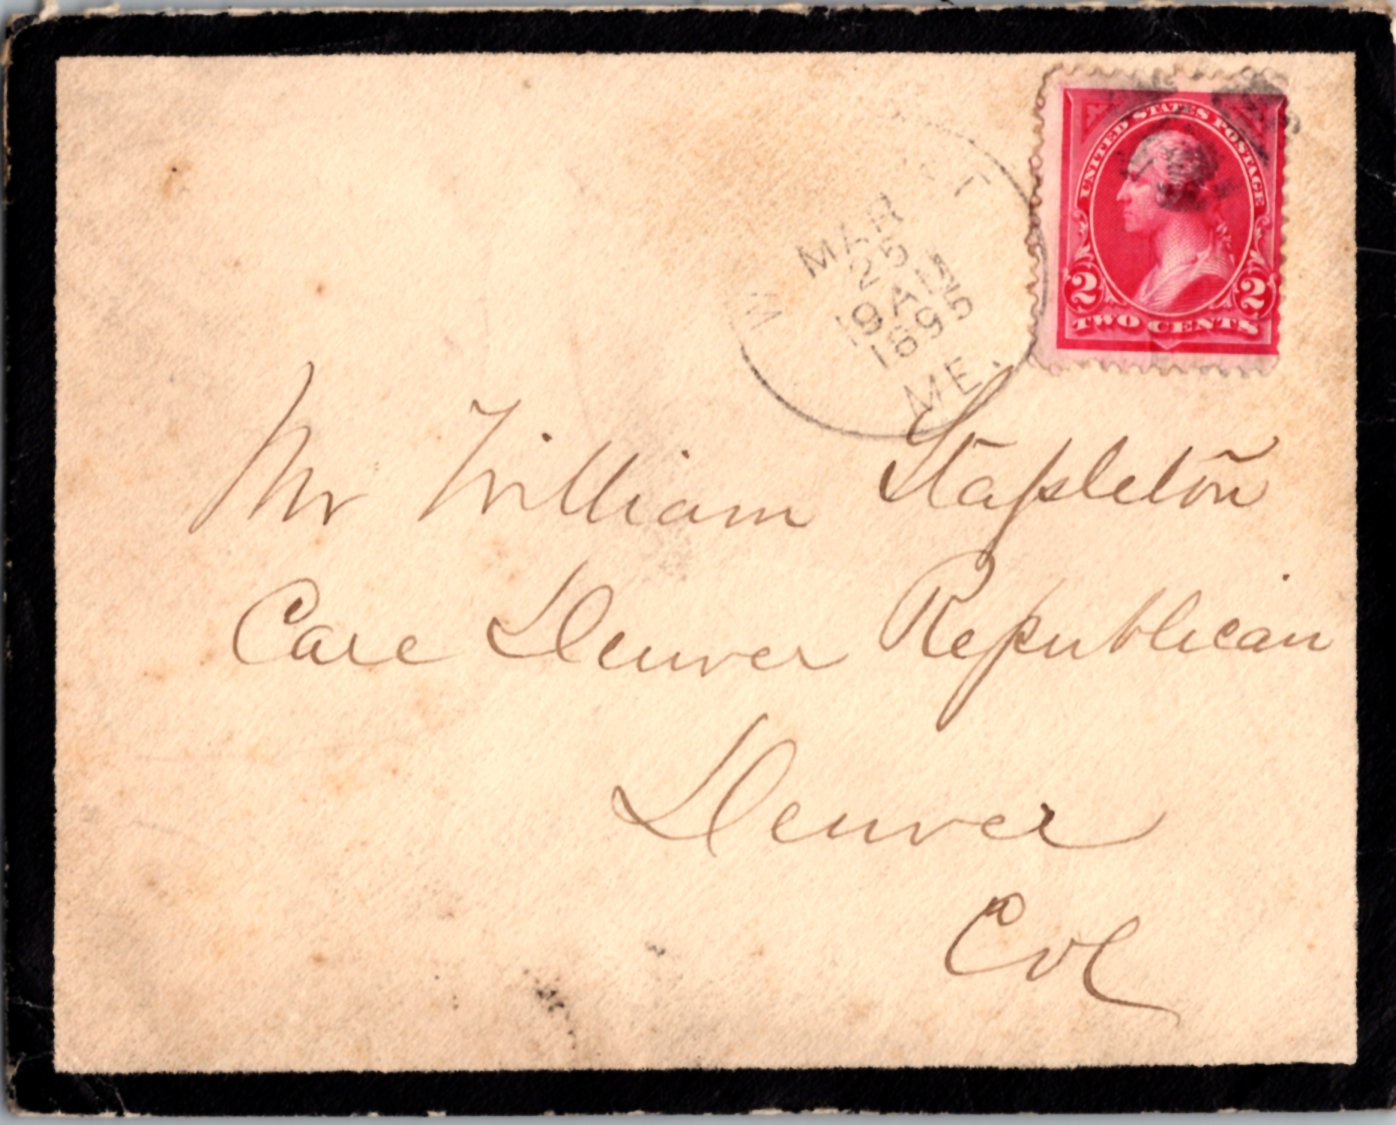 UNITED STATES POSTAGE
2 2
TWO CENTS
MAR
25
9 AM
1895
ME.
Mr William Stapleton
Care Denver Republican
Denver
Col